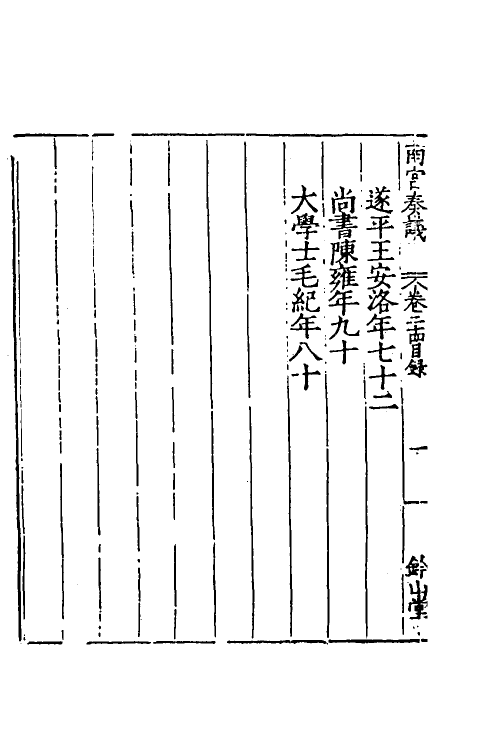 南宮奏議 卷二十四目錄 一 鈐山堂
遂平王安洛年七十二
尚書陳雍年九十
大學士毛紀年八十